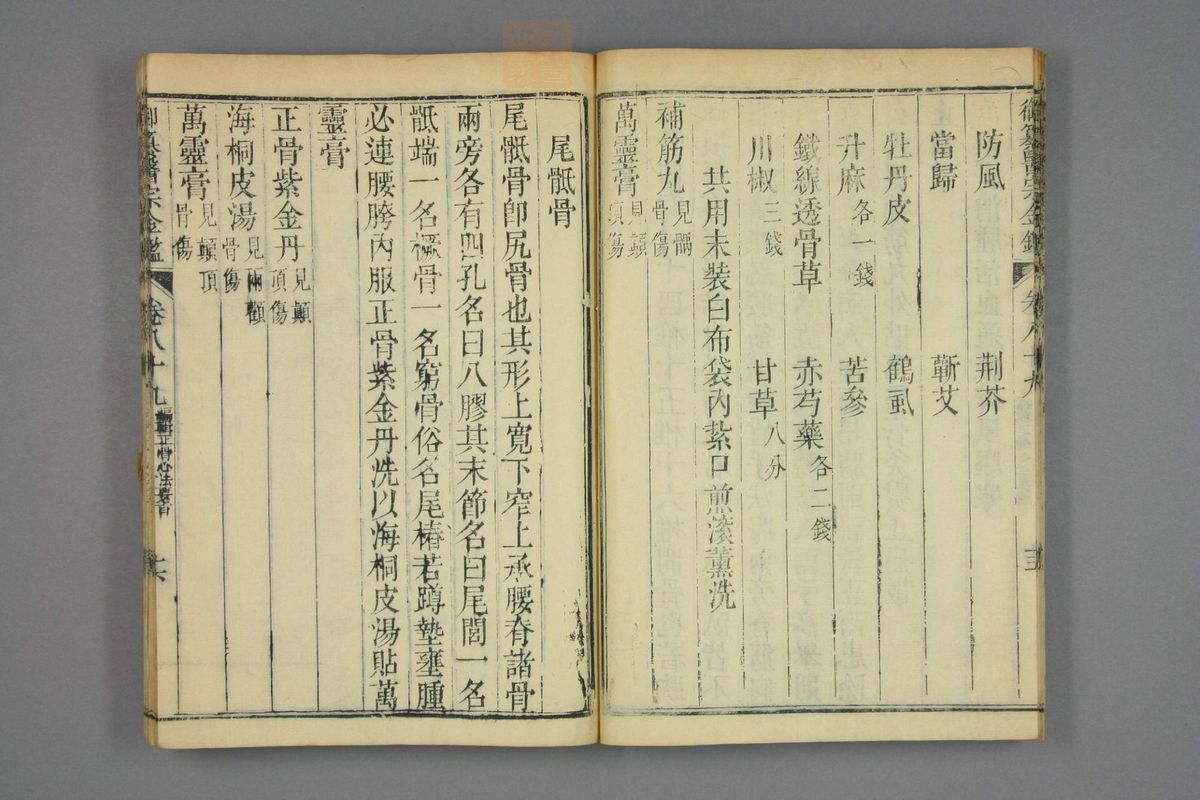 御纂醫宗金鑑 卷八十九
防風 荆芥
當歸 蘄艾
牡丹皮 鶴虱
升麻各一錢 苦參
鐵線透骨草 赤芍藥各二錢
川椒三錢 甘草八分
共用末裝白布袋內紮口煎滚薰洗
補筋丸見髃骨傷
萬靈膏見顛頂傷
尾骶骨
尾骶骨卽尻骨也其形上寬下窄上承腰脊諸骨
兩旁各有四孔名曰八膠其末節名曰尾閭一名
骶端一名橛骨一名窮骨俗名尾樁若蹲墊壅腫
必連腰胯內服正骨紫金丹洗以海桐皮湯貼萬
靈膏
正骨紫金丹見顛頂傷
海桐皮湯見兩顴骨傷
萬靈膏見顛頂骨傷
御纂醫宗金鑑 卷八十九 編輯正骨心法要旨